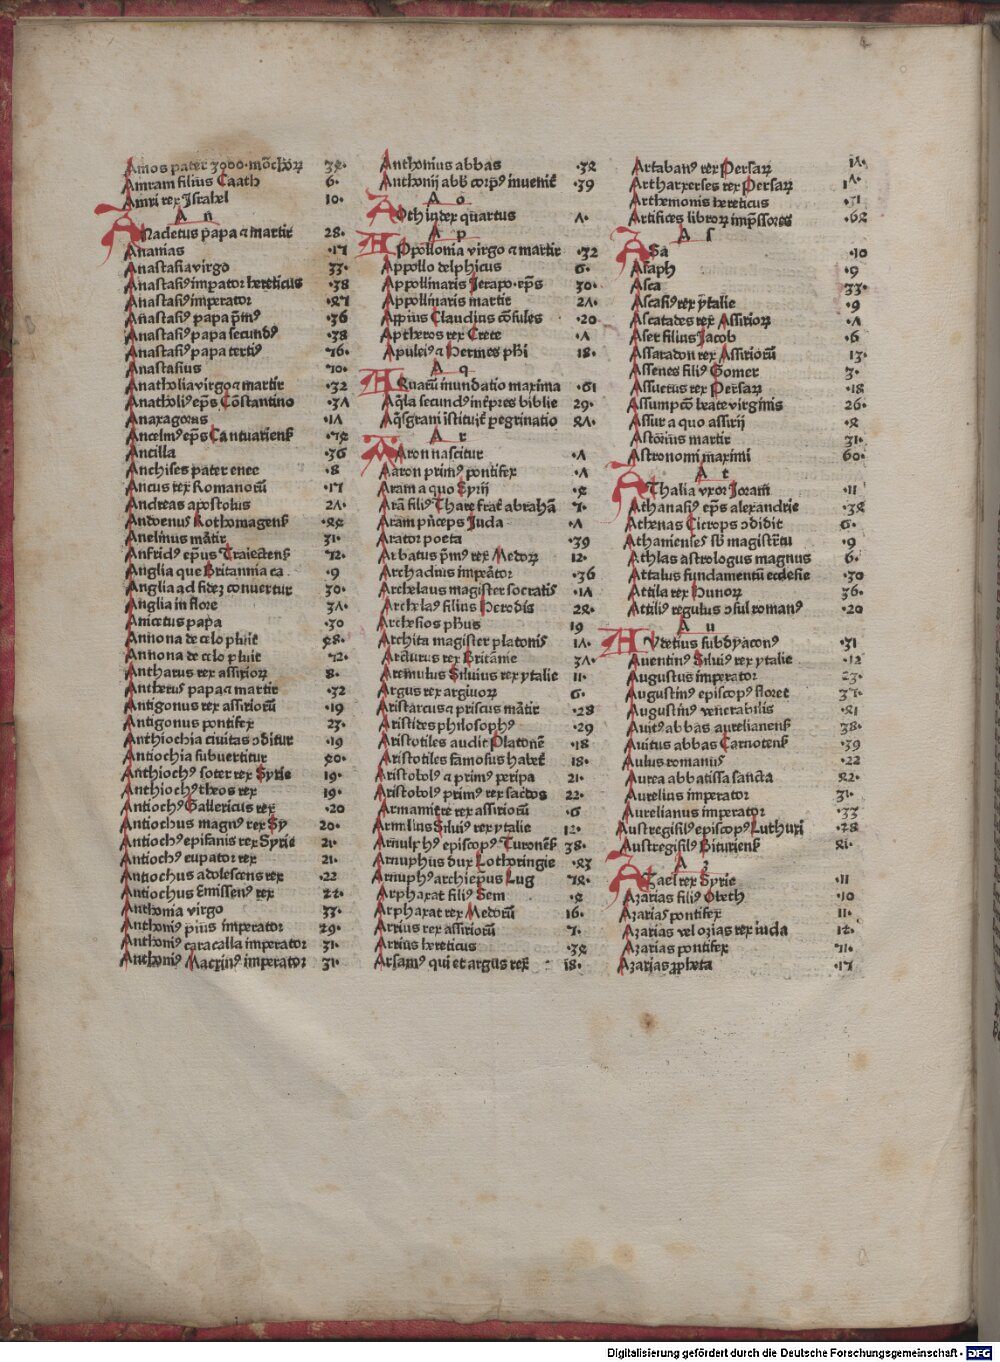 Amos pater 3000 mõchoꝝ 34.
Amram filius Caath 6.
Amri rex Israhel 10.
A n
ANacletus p̄apa ⁊ martir 28.
Ananias .17
Anastasia virgo 33.
Anastasiꝰ imp̄ator hereticus .38
Anastasiꝰ imperator .47
Anastasiꝰ papa p̄mꝰ .36
Anastasiꝰ papa secundꝰ .38
Anastasiꝰ papa tertiꝰ
Anastasius
Anatholia virgo ⁊ martir .32
Anatholiꝰ ep̄s Cõstantino .37
Anaxagoras .17
Ancelmꝰ ep̄s Cantuariens̄
Ancilla .36
Anchises pater enee .8
Ancus rex Romanorũ .17
Andreas apostolus 27.
Andoenus Rothomagens̄
Anelinus m̄atir 31.
Anfridꝰ ep̄us Traiectens̄
Anglia que Britannia ea .9
Anglia ad fidez conuertur 30.
Anglia in flore 37.
Anicetus papa .30
Annona de celo pluit
Annona de celo pluit
Antharus rex assirioꝝ 8.
Antherus papa ⁊ martir .32
Antigonus rex assiriorũ .19
Antigonus pontifex 23.
Anthiochia ciuitas ↄditur .19
Antiochia subuertitur 40.
Anthiochꝰ soter rex Syrie 19.
Anthiochꝰ theos rex 19.
Antiochꝰ Gallericus rex .20
Antiochus magnꝰ rex Sy 20.
Antiochꝰ epifanis rex Syrie 21.
Antiochꝰ eupator rex 21.
Antiochus adolescens rex .22
Antiochus Emissenꝰ rex 22.
Anthonia virgo 33.
Anthoniꝰ pius imperator 29.
Anthoniꝰ caracalla imperator 31.
Anthoniꝰ Macrinꝰ imperator 31.
Anthonius abbas .34
Anthonij abb̄ corpꝰ inuenit̄ .39
A o
AOth iudex quartus .7.
A p
APpollonia virgo ⁊ martir .32
Appollo delphicus 6.
Appollinaris Jerapo. ep̄s 30.
Appollinaris martir 27.
Appius Claudius cõsules .20
Aptheros rex Crete .7
Apuleiꝰ ⁊ Hermes ph̄i 18.
A q
AQuarũ inundatio maxima .61
Aq̄la secundꝰ int̄pres biblie 29.
Aq̄sgrani istituit̄ peregrinatio 47.
A r
AAron nascitur .7
Aaron primꝰ pontifex .7
Aram a quo Syrij .4
Arã filiꝰ Thare frat̄ abrahã 7.
Aram p̄nceps Juda .7
Arator poeta .39
Arbatus p̄mꝰ rex Medoꝝ 12.
Archadius imp̄ator .36
Archelaus magister socratis .17
Archelaꝰ filius Herodis 24.
Archesios ph̄us 19
Archita magister platonis 17.
Arcturus rex Britanie 37.
Aremulus Siluius rex ytalie 11.
Argus rex argiuoꝝ 6.
Aristarcus ⁊ priscus m̄atir .28
Aristides philosophꝰ .29
Aristotiles audit Platonē .18
Aristotiles famosus habet̄ 18.
Aristobolꝰ ⁊ primꝰ peripa 21.
Aristobolꝰ primꝰ rex sac̄dos 22.
Armamitre rex assiriorũ .6
Armilius Siluiꝰ rex ytalie 12.
Arnulphꝰ episcopꝰ Turonens̄ 38.
Arnuphus dux Lothoringie
Arnuphꝰ archiep̄us Lug
Arphaxat filiꝰ Sem .4
Arphaxat rex Medorũ 16.
Arrius rex assiriorũ 7.
Arrius hereticus .34
Arsamꝰ qui et argus rex 18.
Artabanꝰ rex Persaꝝ 17.
Artharxerses rex Persaꝝ 17.
Arthemonis hereticus .31
Artifices libroꝝ imp̄ssores .64
A s
ASa .10
Asaph .9
Asca 33.
Ascasiꝰ rex ytalie .9
Ascatades rex Assirioꝝ .7
Aser filius Jacob .6
Assaradon rex Assiriorũ 13.
Assenes filiꝰ Gomer 3.
Assuerus rex Persaꝝ .18
Assumptõ beate virginis 26.
Assur a quo assirij .4
Astorius martir 31.
Astronomi maximi 60.
A t
AThalia vxor Joram .11
Athanasiꝰ ep̄s alexandrie .34
Athenas Cicrops ↄdidit 6.
Athanienses sb̄ magistr̄tu .9
Athlas astrologus magnus 6.
Attalus fundamentũ ecclesie .30
Attila rex Hunoꝝ 36.
Attiliꝰ regulus ↄsul romanꝰ .20
A u
AVdetius subdyaconꝰ .31
Auentinꝰ Siluiꝰ rex ytalie .12
Augustus imperator 23.
Augustinꝰ episcopꝰ floret 37.
Augustinꝰ venerabilis .41
Auitꝰ abbas aurelianens̄ 38.
Auitus abbas Carnotens̄ .39
Aulus romanus .22
Aurea abbatissa sancta 42.
Aurelius imperator 31.
Aurelianus imperator .33
Austregisilꝰ episcopꝰ Luthuri .28
Austregisilꝰ Bituriens̄ 41.
A z
AZael rex Syrie .11
Azarias filiꝰ Obeth .10
Azarias pontifex 11.
Azarias vel ozias rex iuda 12.
Azarias pontifex
Azarias ꝓpheta .17
Digitalisierung gefördert durch die Deutsche Forschungsgemeinschaft - DFG